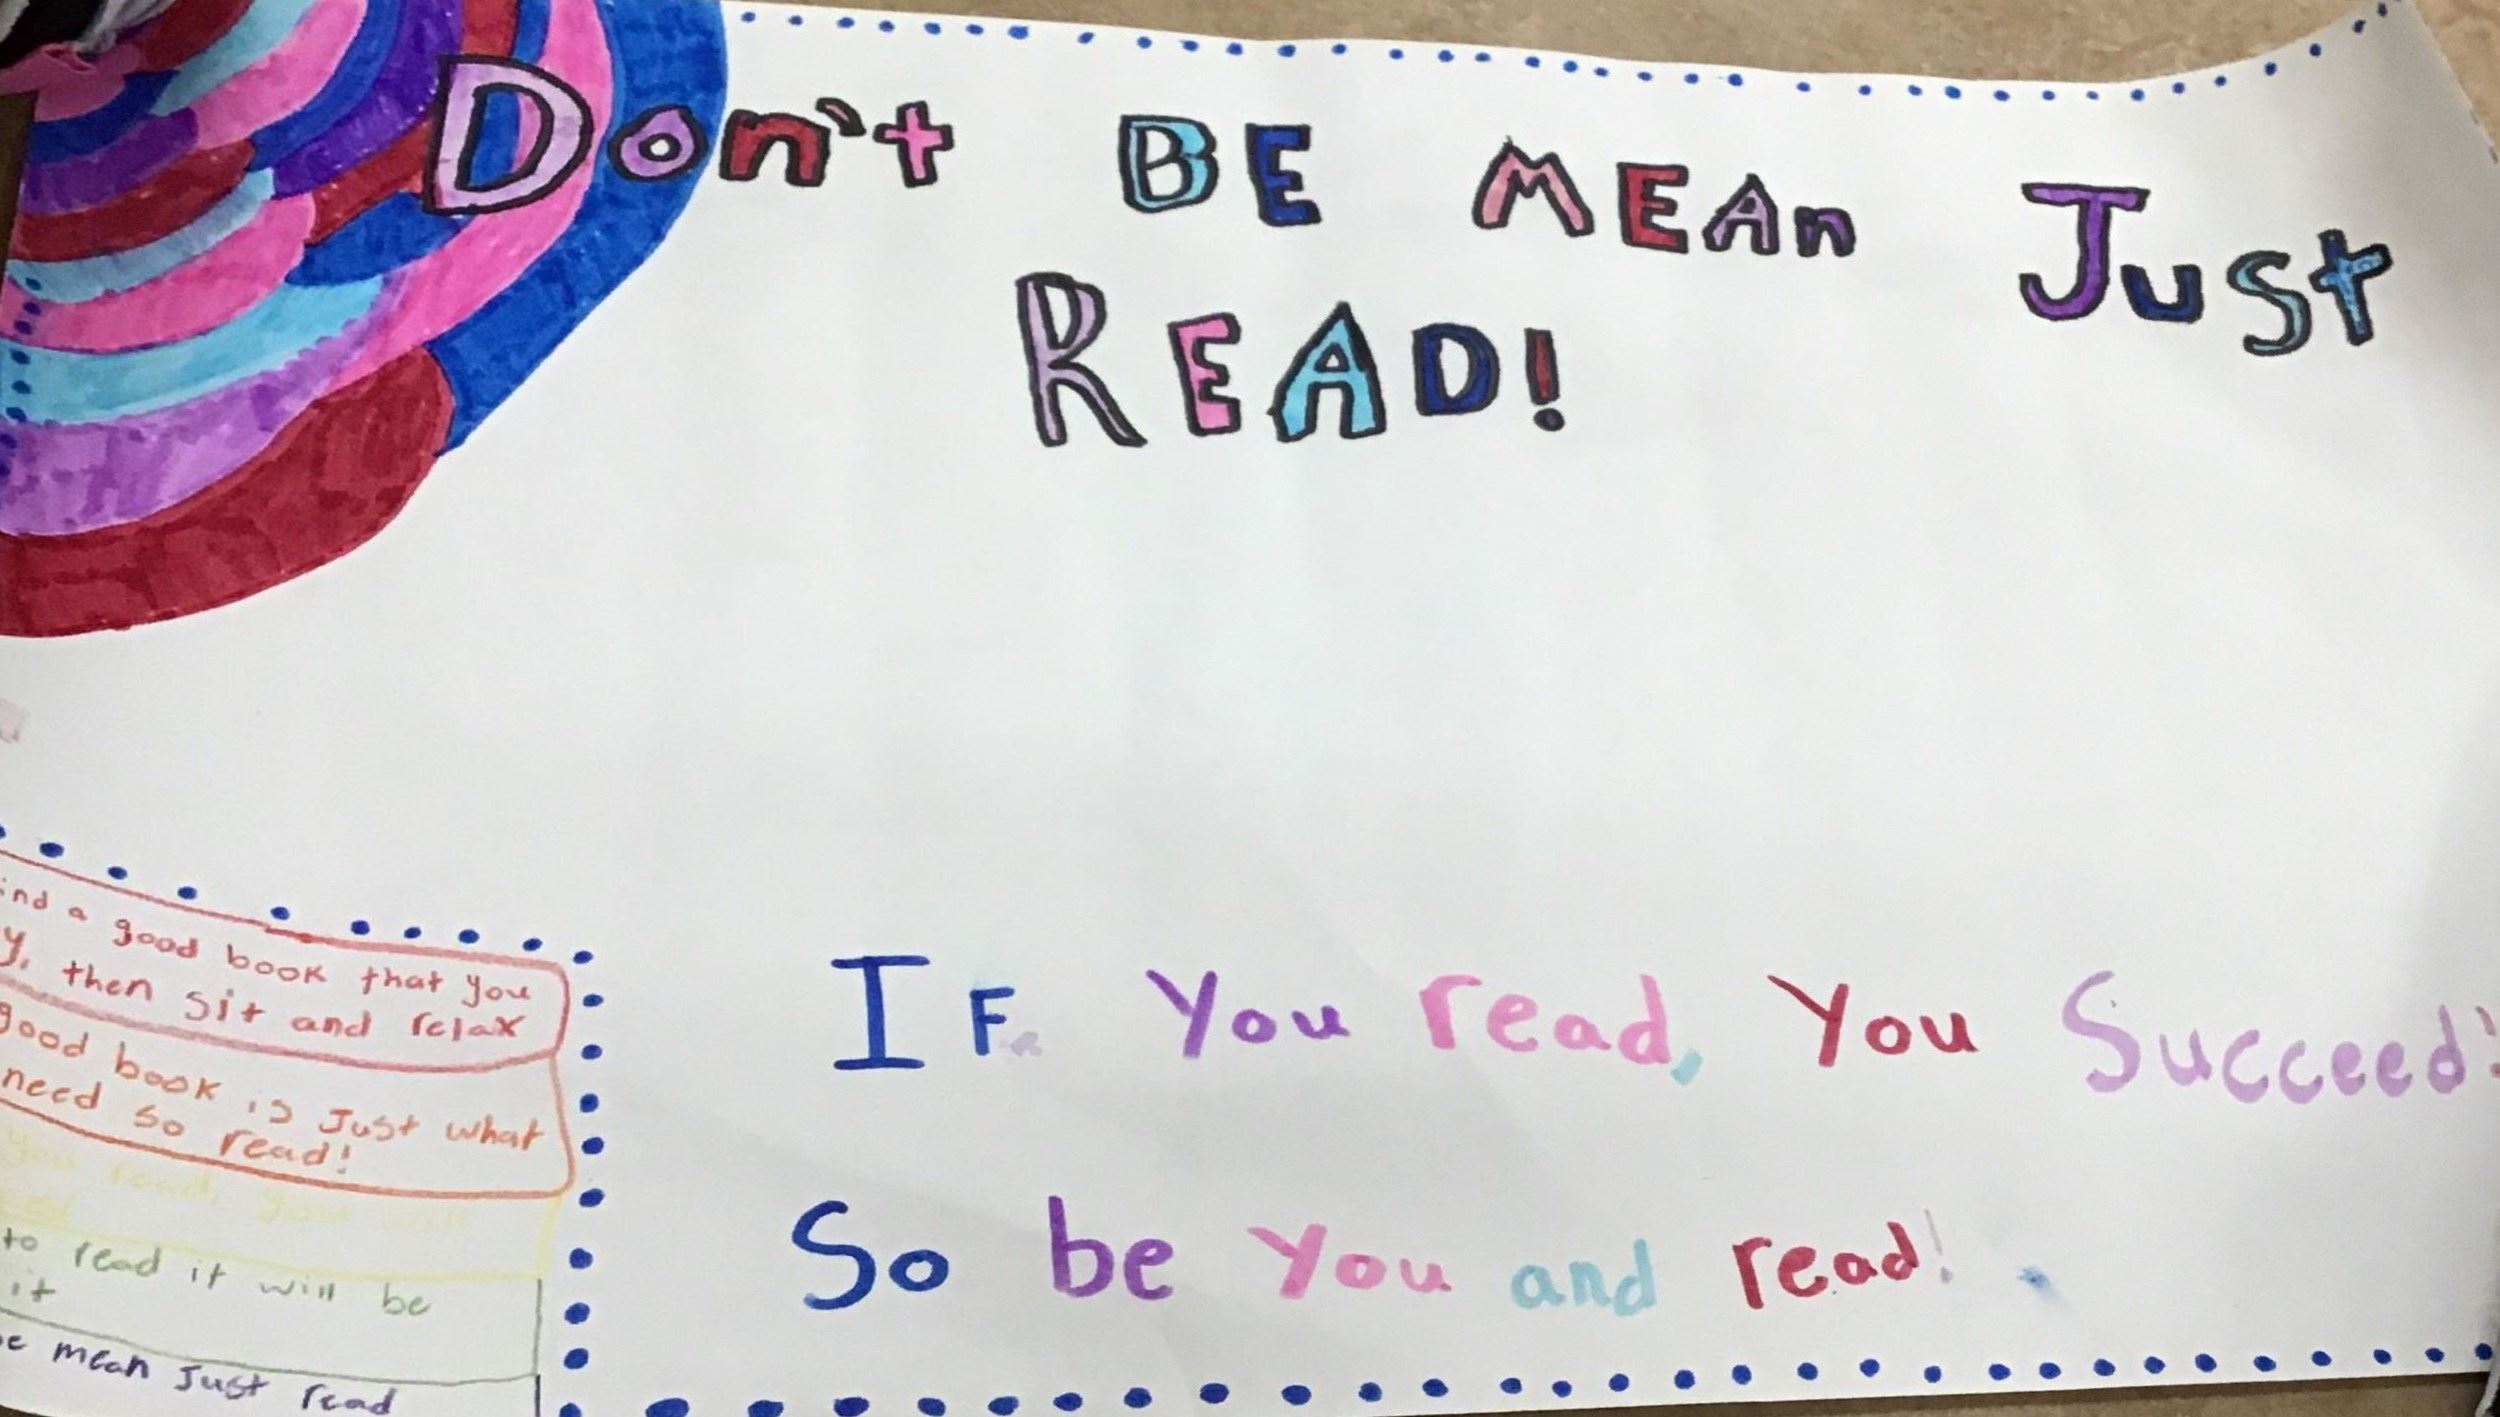 Don't BE MEAn Just
READ!
IF You read, You Succeed!
So be You and read!
a good book that you
then sit and relax
good book is Just what
need so read!
you read, you will
to read it will be
it
mean Just read